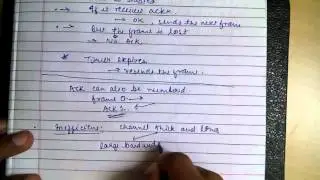 → If it receives ack
→ ok, sends the next frame
→ But the frame is lost
→ No Ack.
* Timer expires
→ resends the frame.
Ack can also be numbered
frame 0
Ack 1
Inefficient channel thick and long
large bandwid